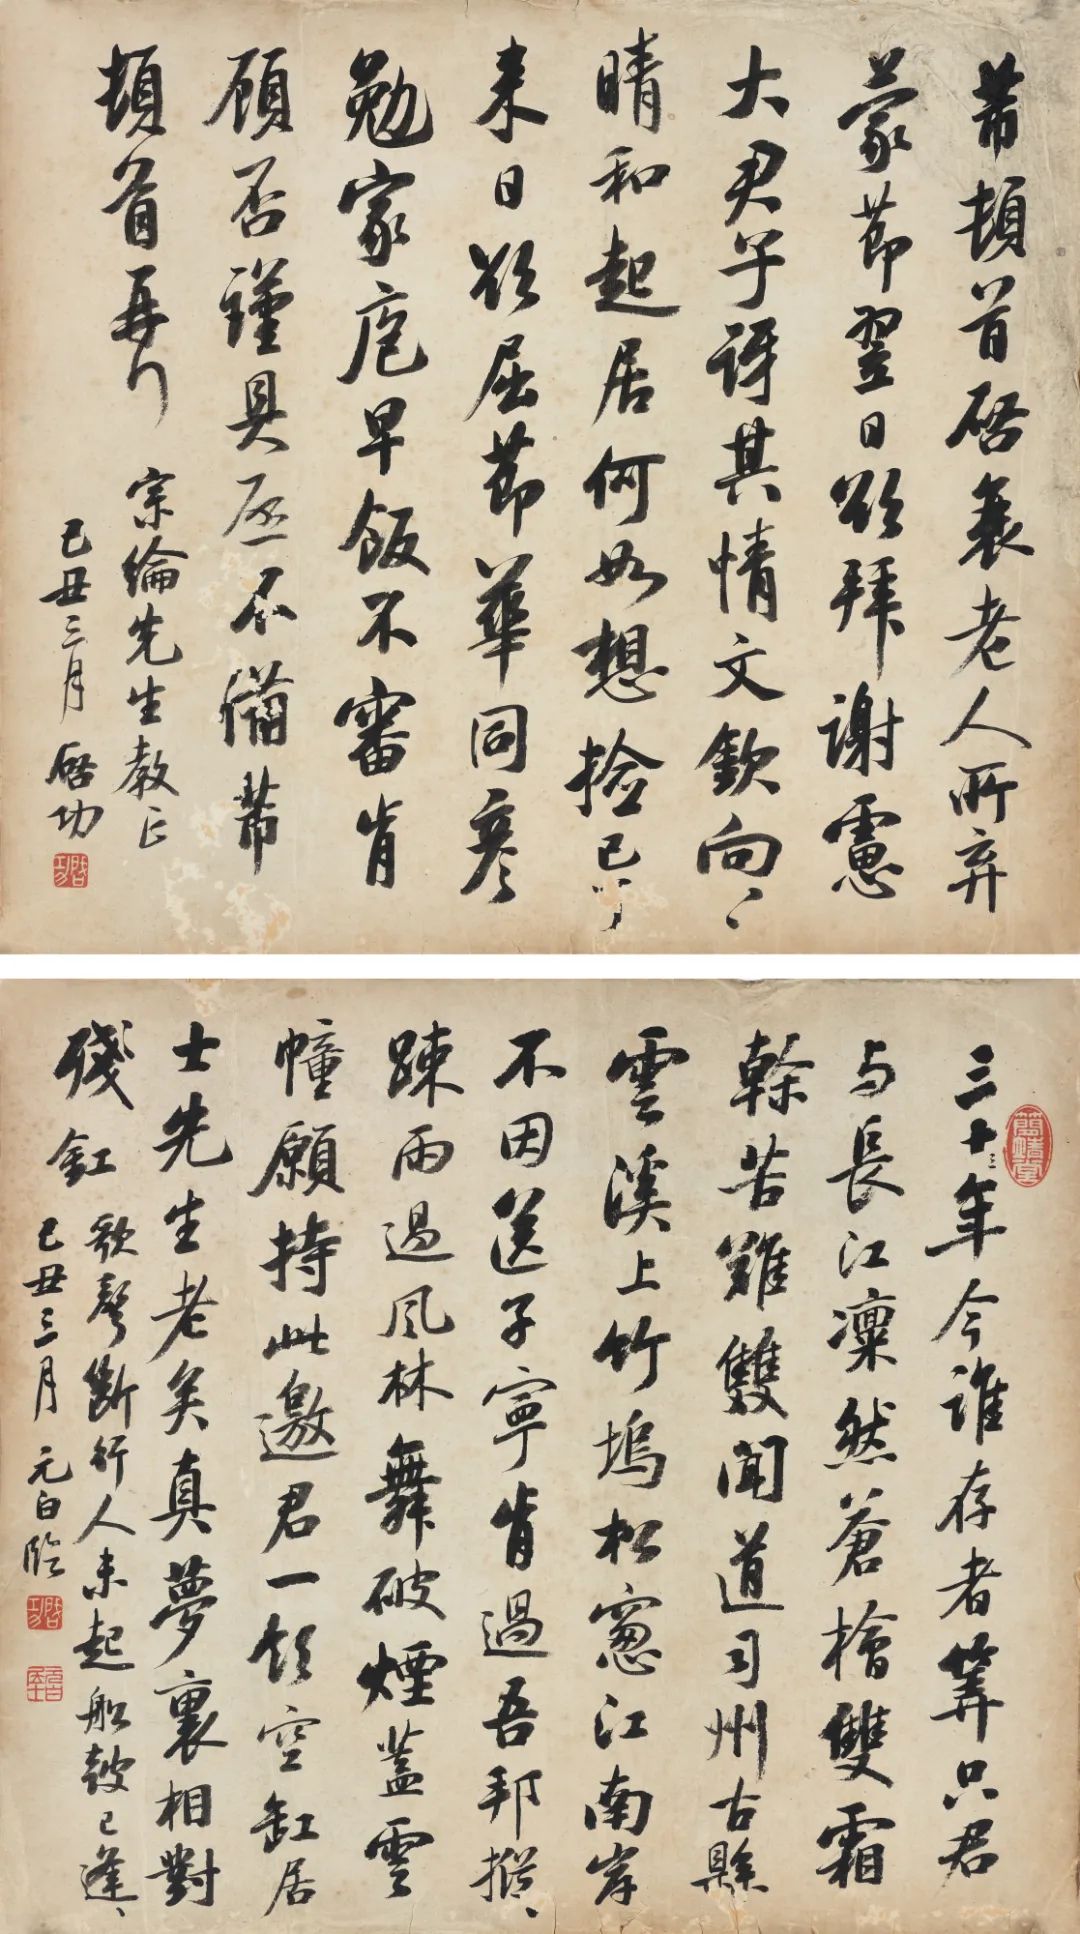 芾頓首啓衰老人所弃
蒙節翌日欲拜謝憲
大君子訝其情文欽向〻
晴和起居何如想撿已
来日欲屈節華同彦
勉家庖早飯不審肯
顧否謹具不備芾
頓首再拜
宗綸先生教正
己丑三月 啓功
啓功
三十三年今誰存者筭只君
与長江凛然蒼檜雙霜
榦苦難雙聞道司州古縣
雲溪上竹塢松窓江南岸
不因送子寧肯過吾邦摐〻
踈雨過風林舞破煙蓋雲
幢願持此邀君一飲空缸居
士先生老矣真夢裏相對
殘釭 歌聲斷行人未起船鼓已逢〻
己丑三月 元白臨
啓功
元白